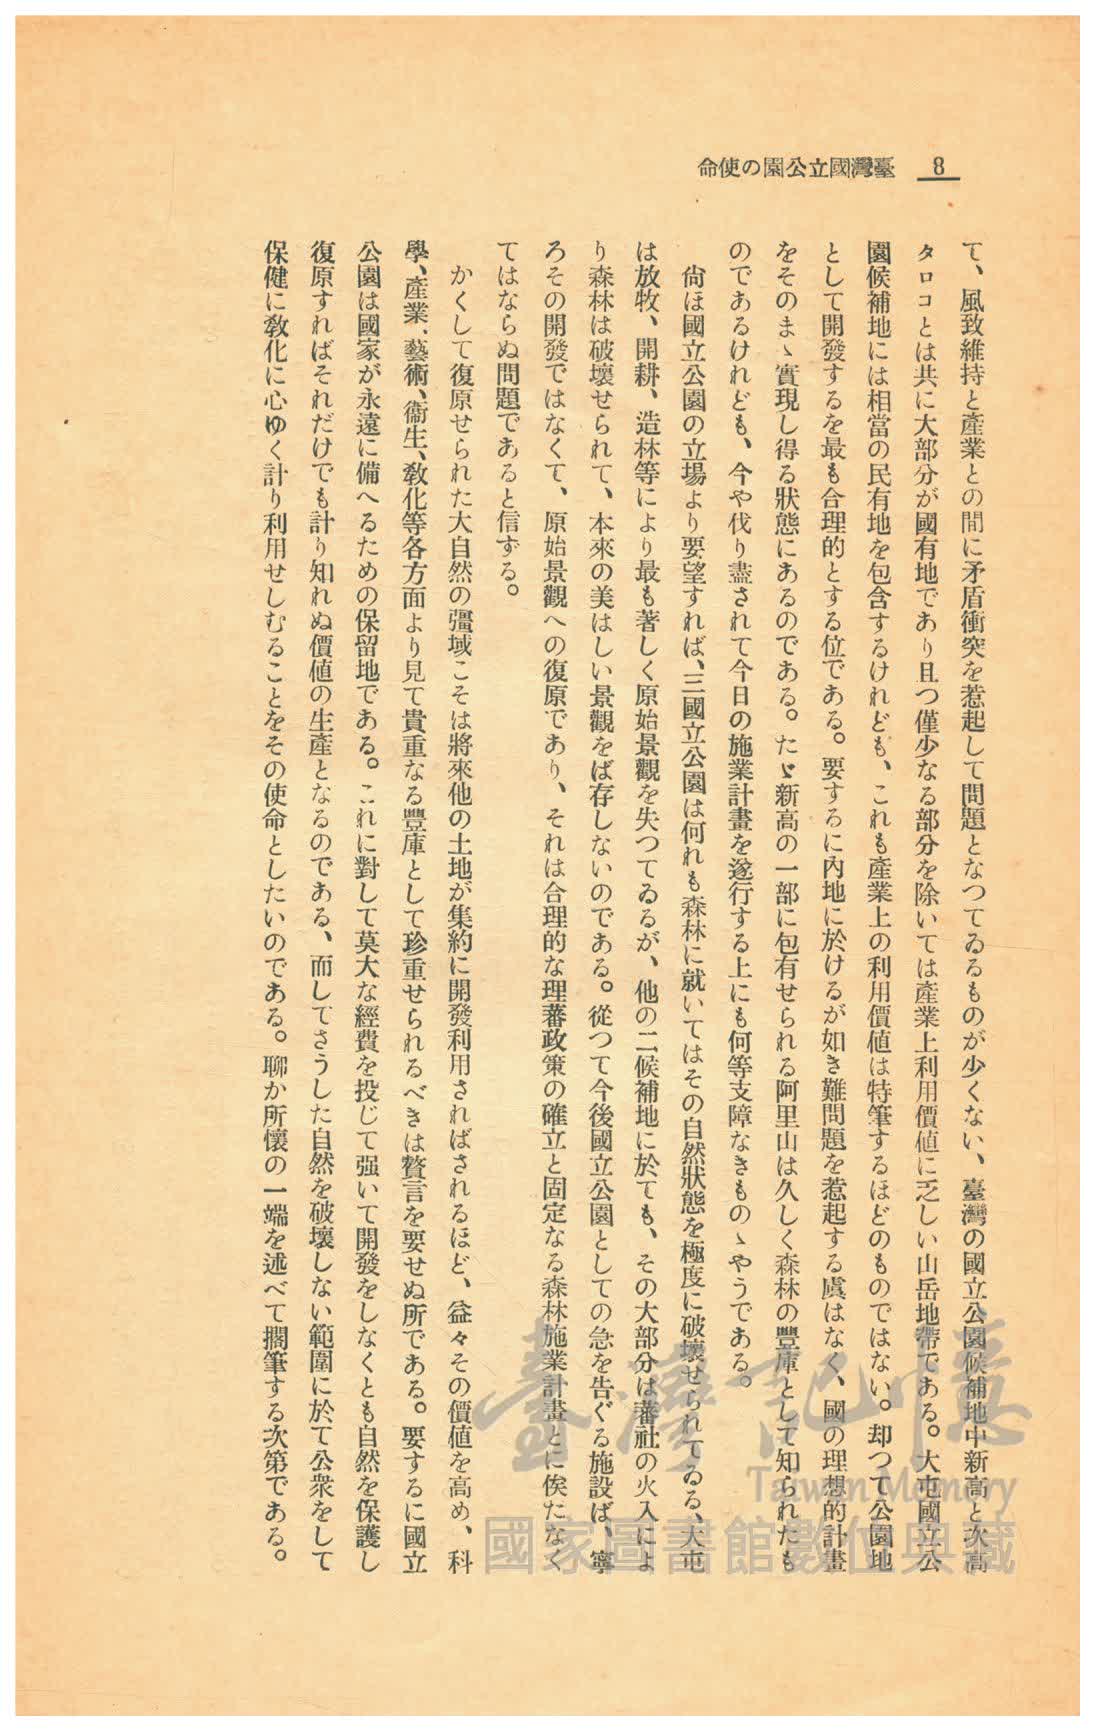 8
命使の園公立國灣臺
て、風致維持と產業との間に矛盾衝突を惹起して問題となつてゐるものが少くない、臺灣の國立公園候補地中新高と次高
タロコとは共に大部分が國有地であり且つ僅少なる部分を除いては產業上利用價値に乏しい山岳地帶である。大屯國立公
園候補地には相當の民有地を包含するけれども、これも產業上の利用價値は特筆するほどのものではない。却つて公園地
として開發するを最も合理的とする位である。要するに內地に於けるが如き難問題を惹起する虞はなく、國の理想的計畫
をそのまゝ實現し得る狀態にあるのである。たゞ新高の一部に包有せられる阿里山は久しく森林の豐庫として知られたも
のであるけれども、今や伐り盡されて今日の施業計畫を遂行する上にも何等支障なきものゝやうである。
尙ほ國立公園の立場より要望すれば、三國立公園は何れも森林に就いてはその自然狀態を極度に破壞せられてゐる、大屯
は放牧、開耕、造林等により最も著しく原始景觀を失つてゐるが、他の二候補地に於ても、その大部分は蕃社の火入によ
り森林は破壞せられて、本來の美はしい景觀をば存しないのである。從つて今後國立公園としての急を吿ぐる施設ば、寧
ろその開發ではなくて、原始景觀への復原であり、それは合理的な理蕃政策の確立と固定なる森林施業計畫とに俟たなく
てはならぬ問題であると信ずる。
かくして復原せられた大自然の彊域こそは將來他の土地が集約に開發利用さればされるほど、益々その價値を高め、科
學、產業、藝術、衞生、敎化等各方面より見て貴重なる豐庫として珍重せられるべきは贅言を要せぬ所である。要するに國立
公園は國家が永遠に備へるための保留地である。これに對して莫大な經費を投じて强いて開發をしなくとも自然を保護し
復原すればそれだけでも計り知れぬ價値の生產となるのである、而してさうした自然を破壞しない範圍に於て公衆をして
保健に敎化に心ゆく計り利用せしむることをその使命としたいのである。聊か所懷の一端を述べて擱筆する次第である。
臺灣記憶
Taiwan Memory
國家圖書館數位典藏